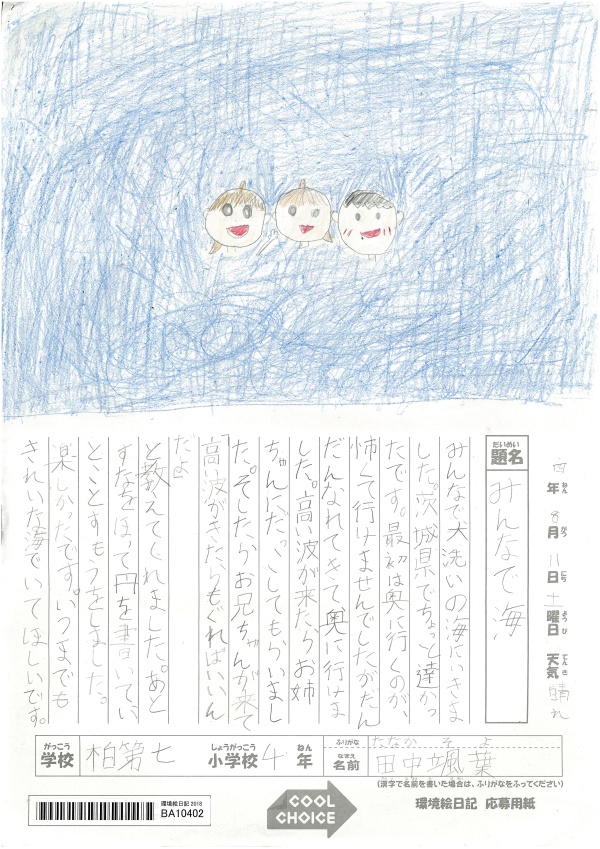 四年 8月 11日 土曜日 天気 晴れ
ねん がつ にち ようび てんき
だいめい
題名 みんなで海
みんなで大洗いの海にいきま
した。茨城県でちょっと達かっ
たです。最初は奥に行くのが、
怖くて行けませんでしたがだん
だんなれてきて、奥に行けま
した。高い波が来たらお姉
ちゃんにだっこしてもらいまし
た。そしたらお兄ちゃんが来て
「高波がきたらもぐればいいん
だよ」
と教えてくれました。あと
すなをほって円を書いてい、
とことすもうをしました。
楽しかったです。いつまでも
きれいな海でいてほしいです。
がっこう しょうがっこう ねん
学校 柏第七 小学校 4 年
ふりがな たなか そよ
なまえ
名前 田中颯葉
(漢字で名前を書いた場合は、ふりがなをふってください)
環境絵日記 2018
BA10402
COOL
CHOICE
環境絵日記 応募用紙